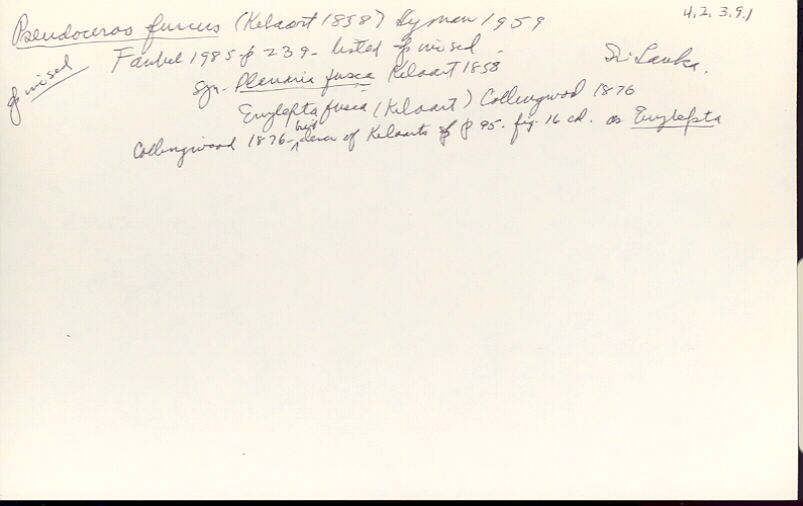 4.2.3.9.1
Pseudoceros fuscus (Kelaart 1858) Hyman 1959
Faubel 1985 p 239 - listed p mixed.
p mixed
Sri Lanka.
Syn. Planaria fusca Kelaart 1858
Eurylepta fusca (Kelaart) Collingwood 1876
Collingwood 1876 - descr of Kelaarts sp p 95. fig. 16 col. as Eurylepta